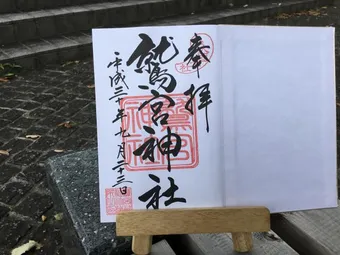 奉拝
鷲宮神社
平成三十年七月二十三日